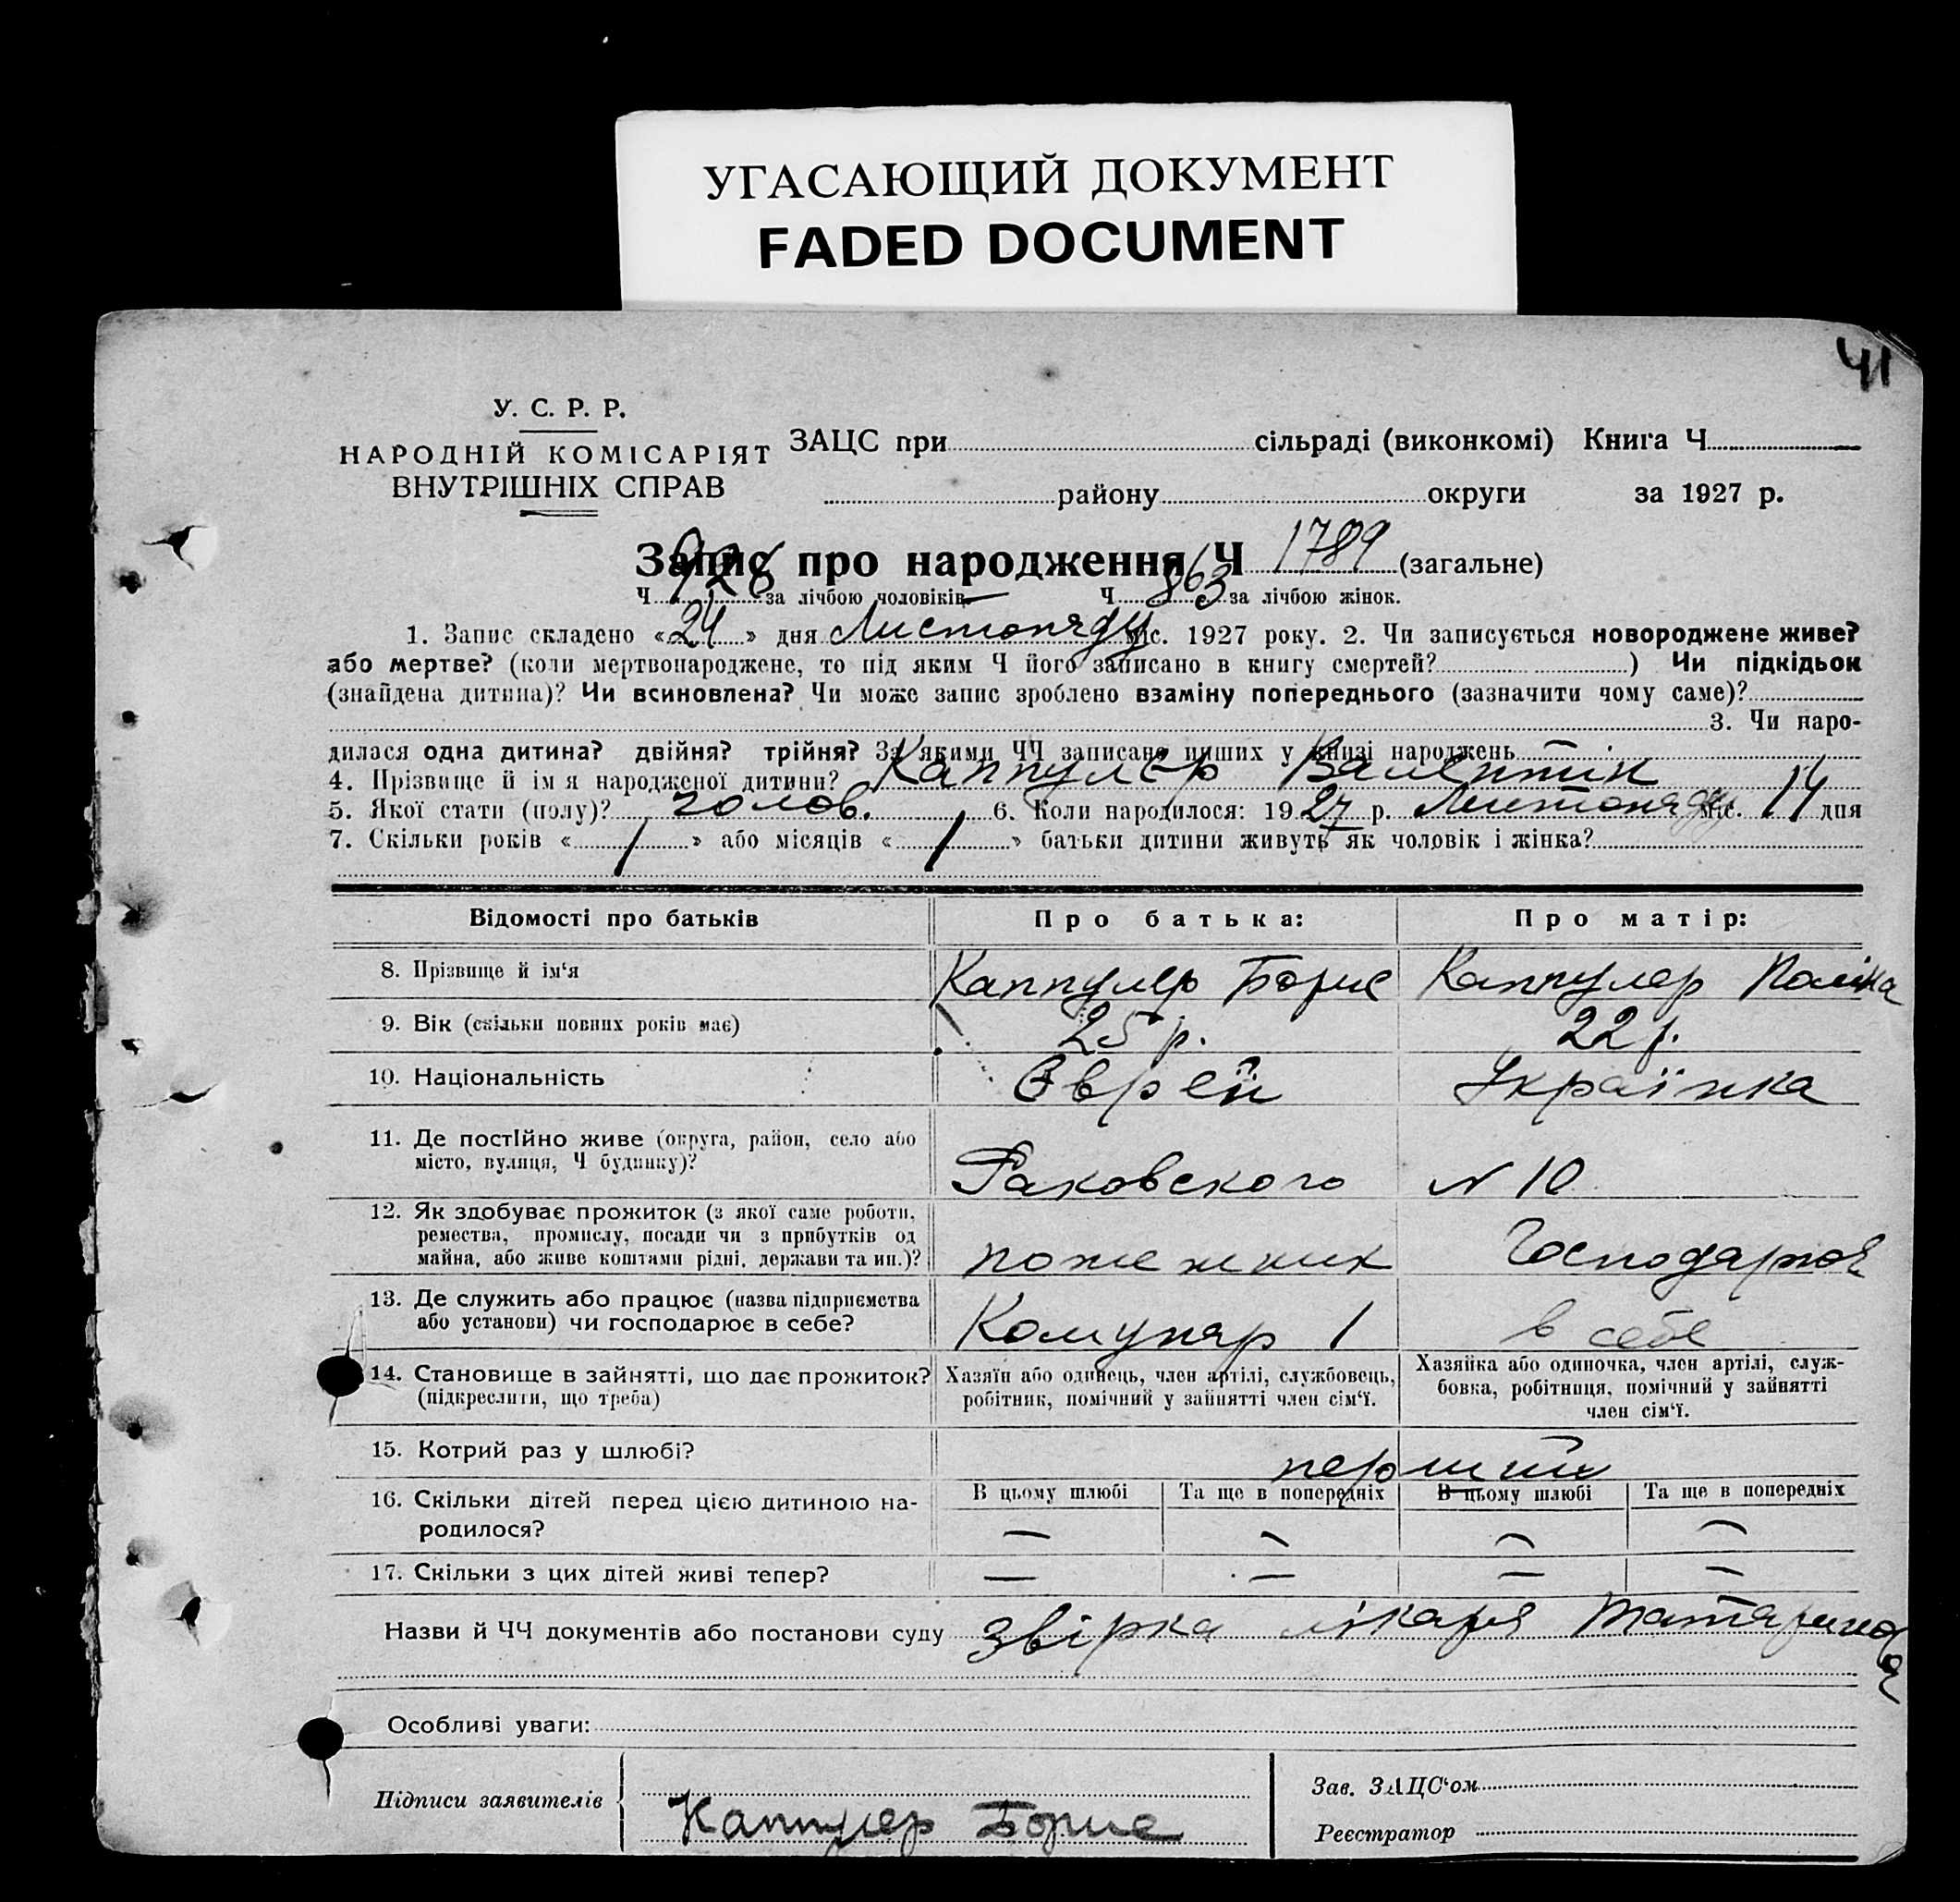 УГАСАЮЩИЙ ДОКУМЕНТ
FADED DOCUMENT
41
У. С. Р. Р.
НАРОДНІЙ КОМІСАРІЯТ
ВНУТРІШНІХ СПРАВ
ЗАЦС при сільраді (виконкомі) Книга Ч
району округи за 1927 р.
Запис про народження Ч 1789 (загальне)
Ч 926 за лічбою чоловіків Ч 863 за лічбою жінок.
1. Запис складено «24» дня Листопаду міс. 1927 року. 2. Чи записується новороджене живе?
або мертве? (коли мертвонароджене, то під яким Ч його записано в книгу смертей? ) Чи підкідьок
(знайдена дитина)? Чи всиновлена? Чи може запис зроблено взаміну попереднього (зазначити чому саме)?
3. Чи наро-
дилася одна дитина? двійня? трійня? За якими ЧЧ записано инших у книзі народжень —
4. Прізвище й імя народженої дитини? Каппулер Валентін
5. Якої стати (полу)? чолов. 6. Коли народилося: 1927 р. Листопаду міс. 14 дня
7. Скільки років « / » або місяців « / » батьки дитини живуть як чоловік і жінка?
Відомості про батьків Про батька: Про матір:
8. Прізвище й ім‘я Каппулер Борис Каппулер Поліна
9. Вік (скільки повних років має) 25 р. 22 р.
10. Національність Єврей Українка
11. Де постійно живе (округа, район, село або
місто, вулиця, Ч будинку)? Раковского N 10
12. Як здобуває прожиток (з якої саме роботи,
ремества, промислу, посади чи з прибутків од
майна, або живе коштами рідні, держави та ин.)? пожежник Господаркоя
13. Де служить або працює (назва підприємства
або установи) чи господарює в себе? Комунар 1 в себе
14. Становище в зайнятті, що дає прожиток?
(підкреслити, що треба)
Хазяїн або одинець, член артілі, службовець,
робітник, помічний у зайнятті член сім‘ї.
Хазяйка або одиночка, член артілі, служ-
бовка, робітниця, помічний у зайнятті
член сім‘ї.
15. Котрий раз у шлюбі? перший
16. Скільки дітей перед цією дитиною на-
родилося?
В цьому шлюбі Та ще в попередніх В цьому шлюбі Та ще в попередніх
— — — —
17. Скільки з цих дітей живі тепер? — — — —
Назви й ЧЧ документів або постанови суду звірка лікаря Татаринова
Особливі уваги:
Підписи заявителів
Каппулер Борис
Зав. ЗАЦС‘ом
Реєстратор